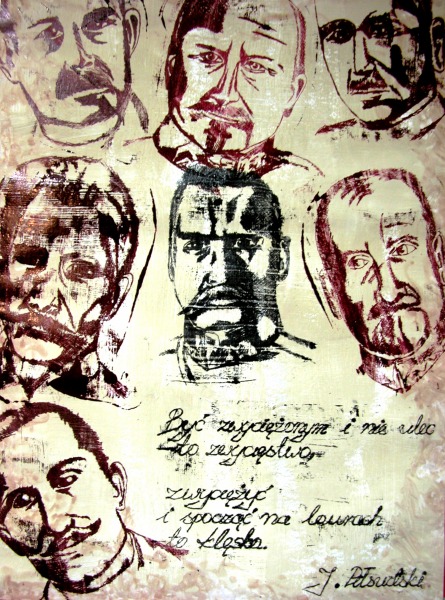 Być zwyciężonym i nie ulec
to zwycięstwo,
zwyciężyć
i spocząć na laurach
to klęska.
J. Piłsudski